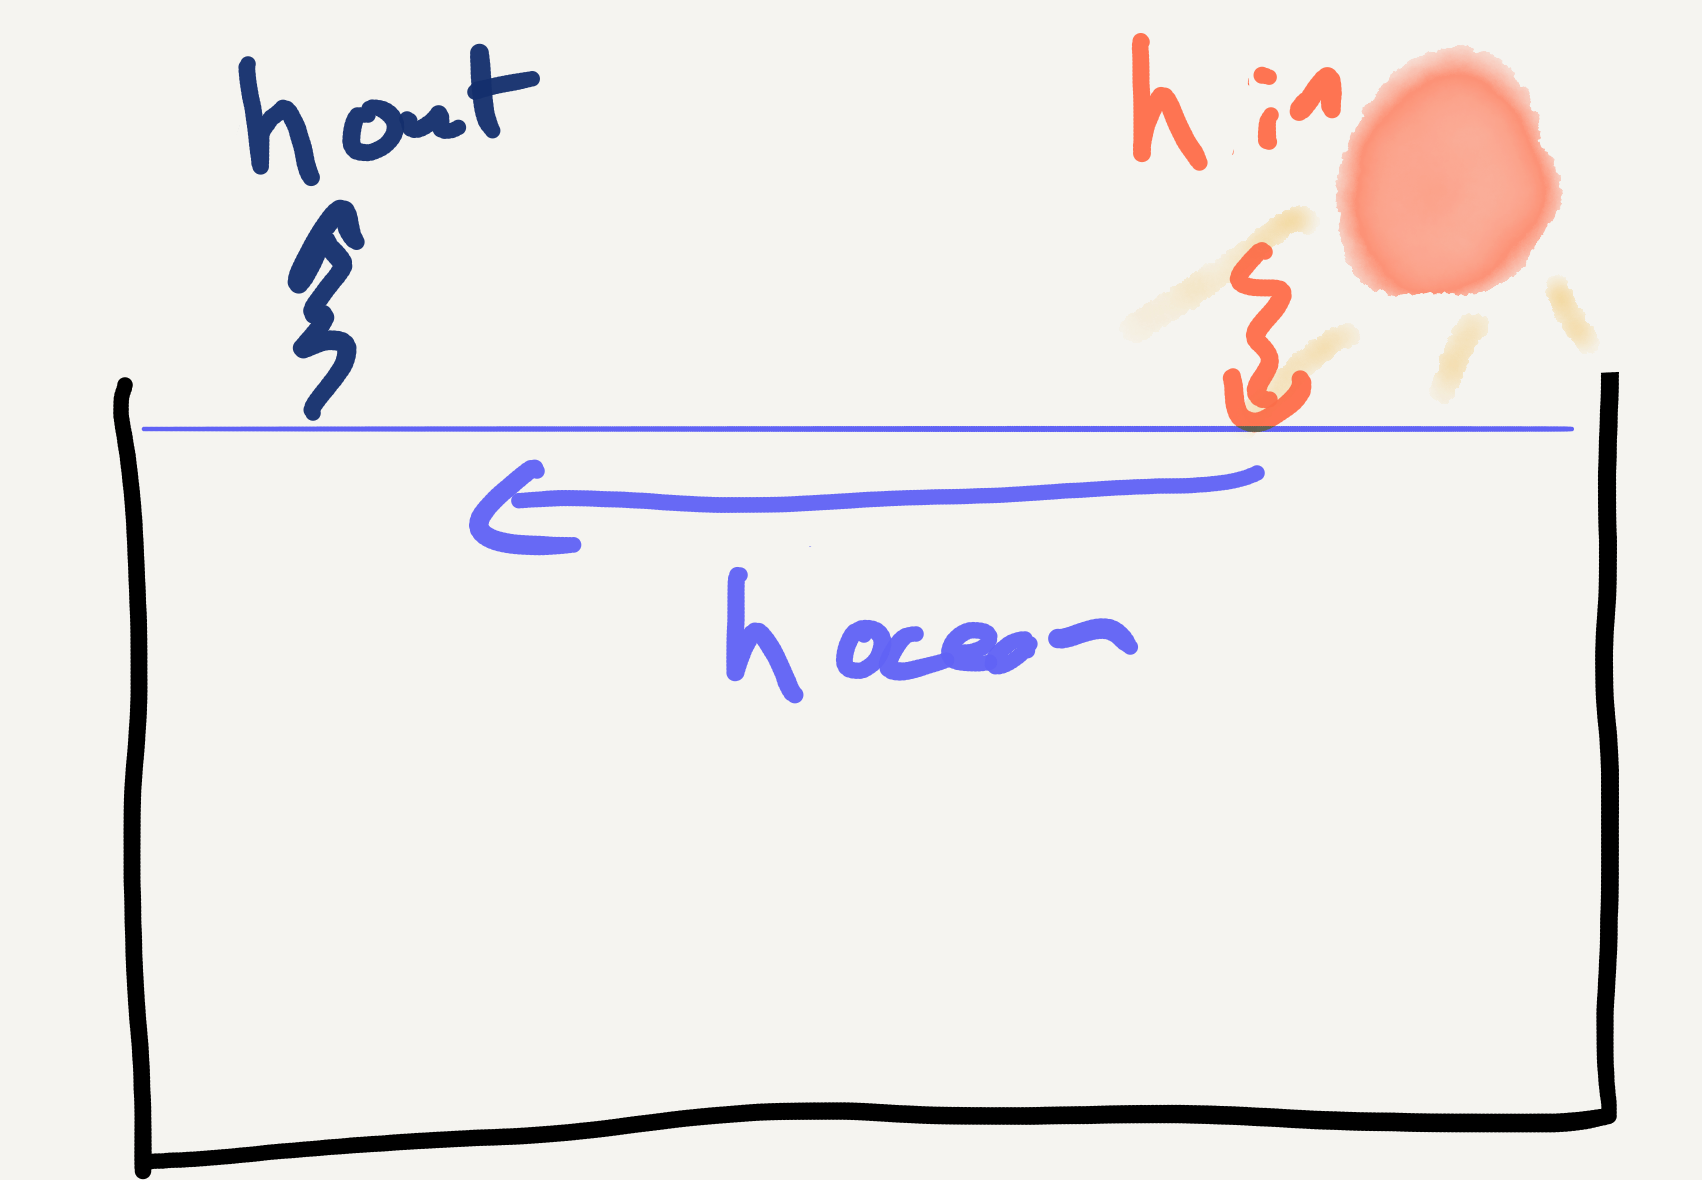 h out
h in
h ocean